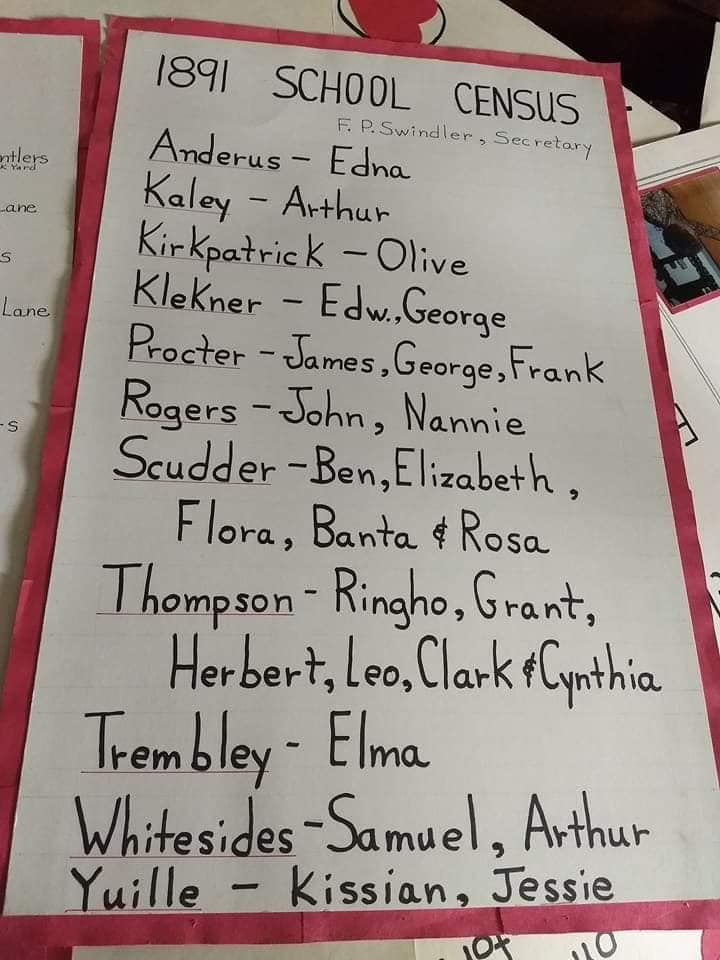 1891 SCHOOL CENSUS
F. P. Swindler, Secretary
Anderus - Edna
Kaley - Arthur
Kirkpatrick - Olive
Klekner - Edw., George
Procter - James, George, Frank
Rogers - John, Nannie
Scudder - Ben, Elizabeth,
Flora, Banta & Rosa
Thompson - Ringho, Grant,
Herbert, Leo, Clark & Cynthia
Trembley - Elma
Whitesides - Samuel, Arthur
Yuille - Kissian, Jessie
Lane
Lane